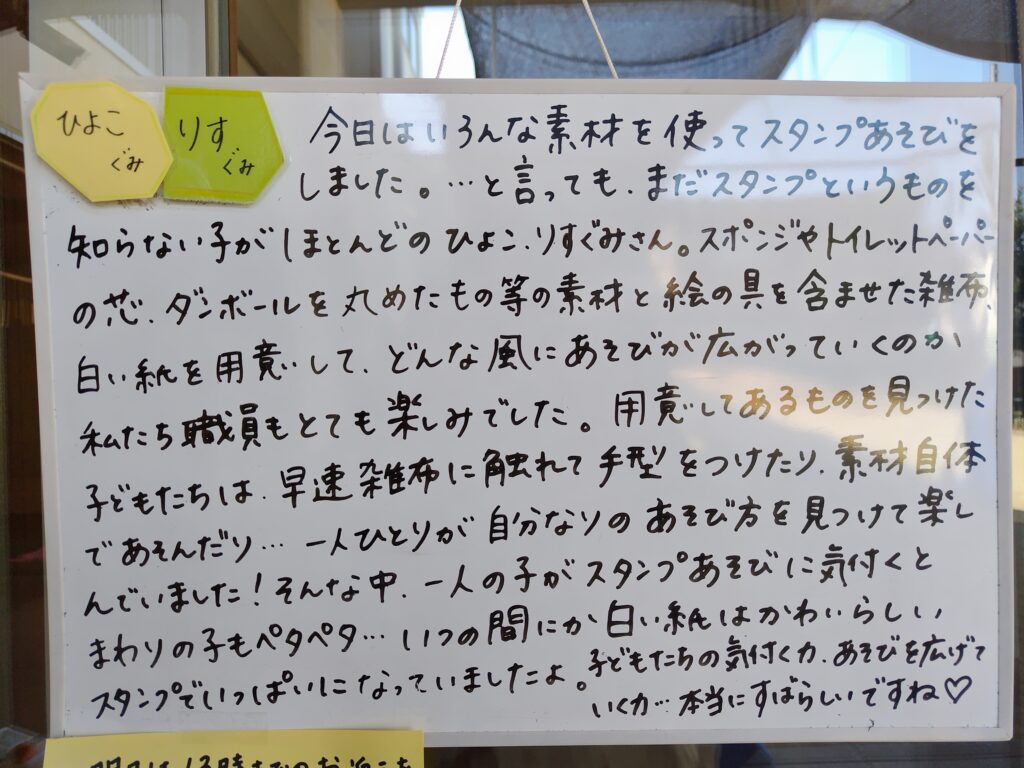 ひよこ
ぐみ
りす
ぐみ
今日はいろんな素材を使ってスタンプあそびを
しました。…と言っても、まだスタンプというものを
知らない子がほとんどのひよこ、りすぐみさん。スポンジやトイレットペーパー
の芯、ダンボールを丸めたもの等の素材と絵の具を含ませた雑布、
白い紙を用意して、どんな風にあそびが広がっていくのか
私たち職員もとても楽しみでした。用意してあるものを見つけた
子どもたちは、早速雑布に触れて手型をつけたり、素材自体
であそんだり…一人ひとりが自分なりのあそび方を見つけて楽し
んでいました!そんな中、一人の子がスタンプあそびに気付くと
まわりの子もペタペタ…いつの間にか白い紙はかわいらしい
スタンプでいっぱいになっていましたよ。子どもたちの気付く力、あそびを広げて
いく力…本当にすばらしいですね♡